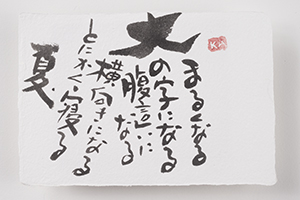 まるくなる
大の字になる
腹這いになる
横向きになる
とにかく寝る
夏